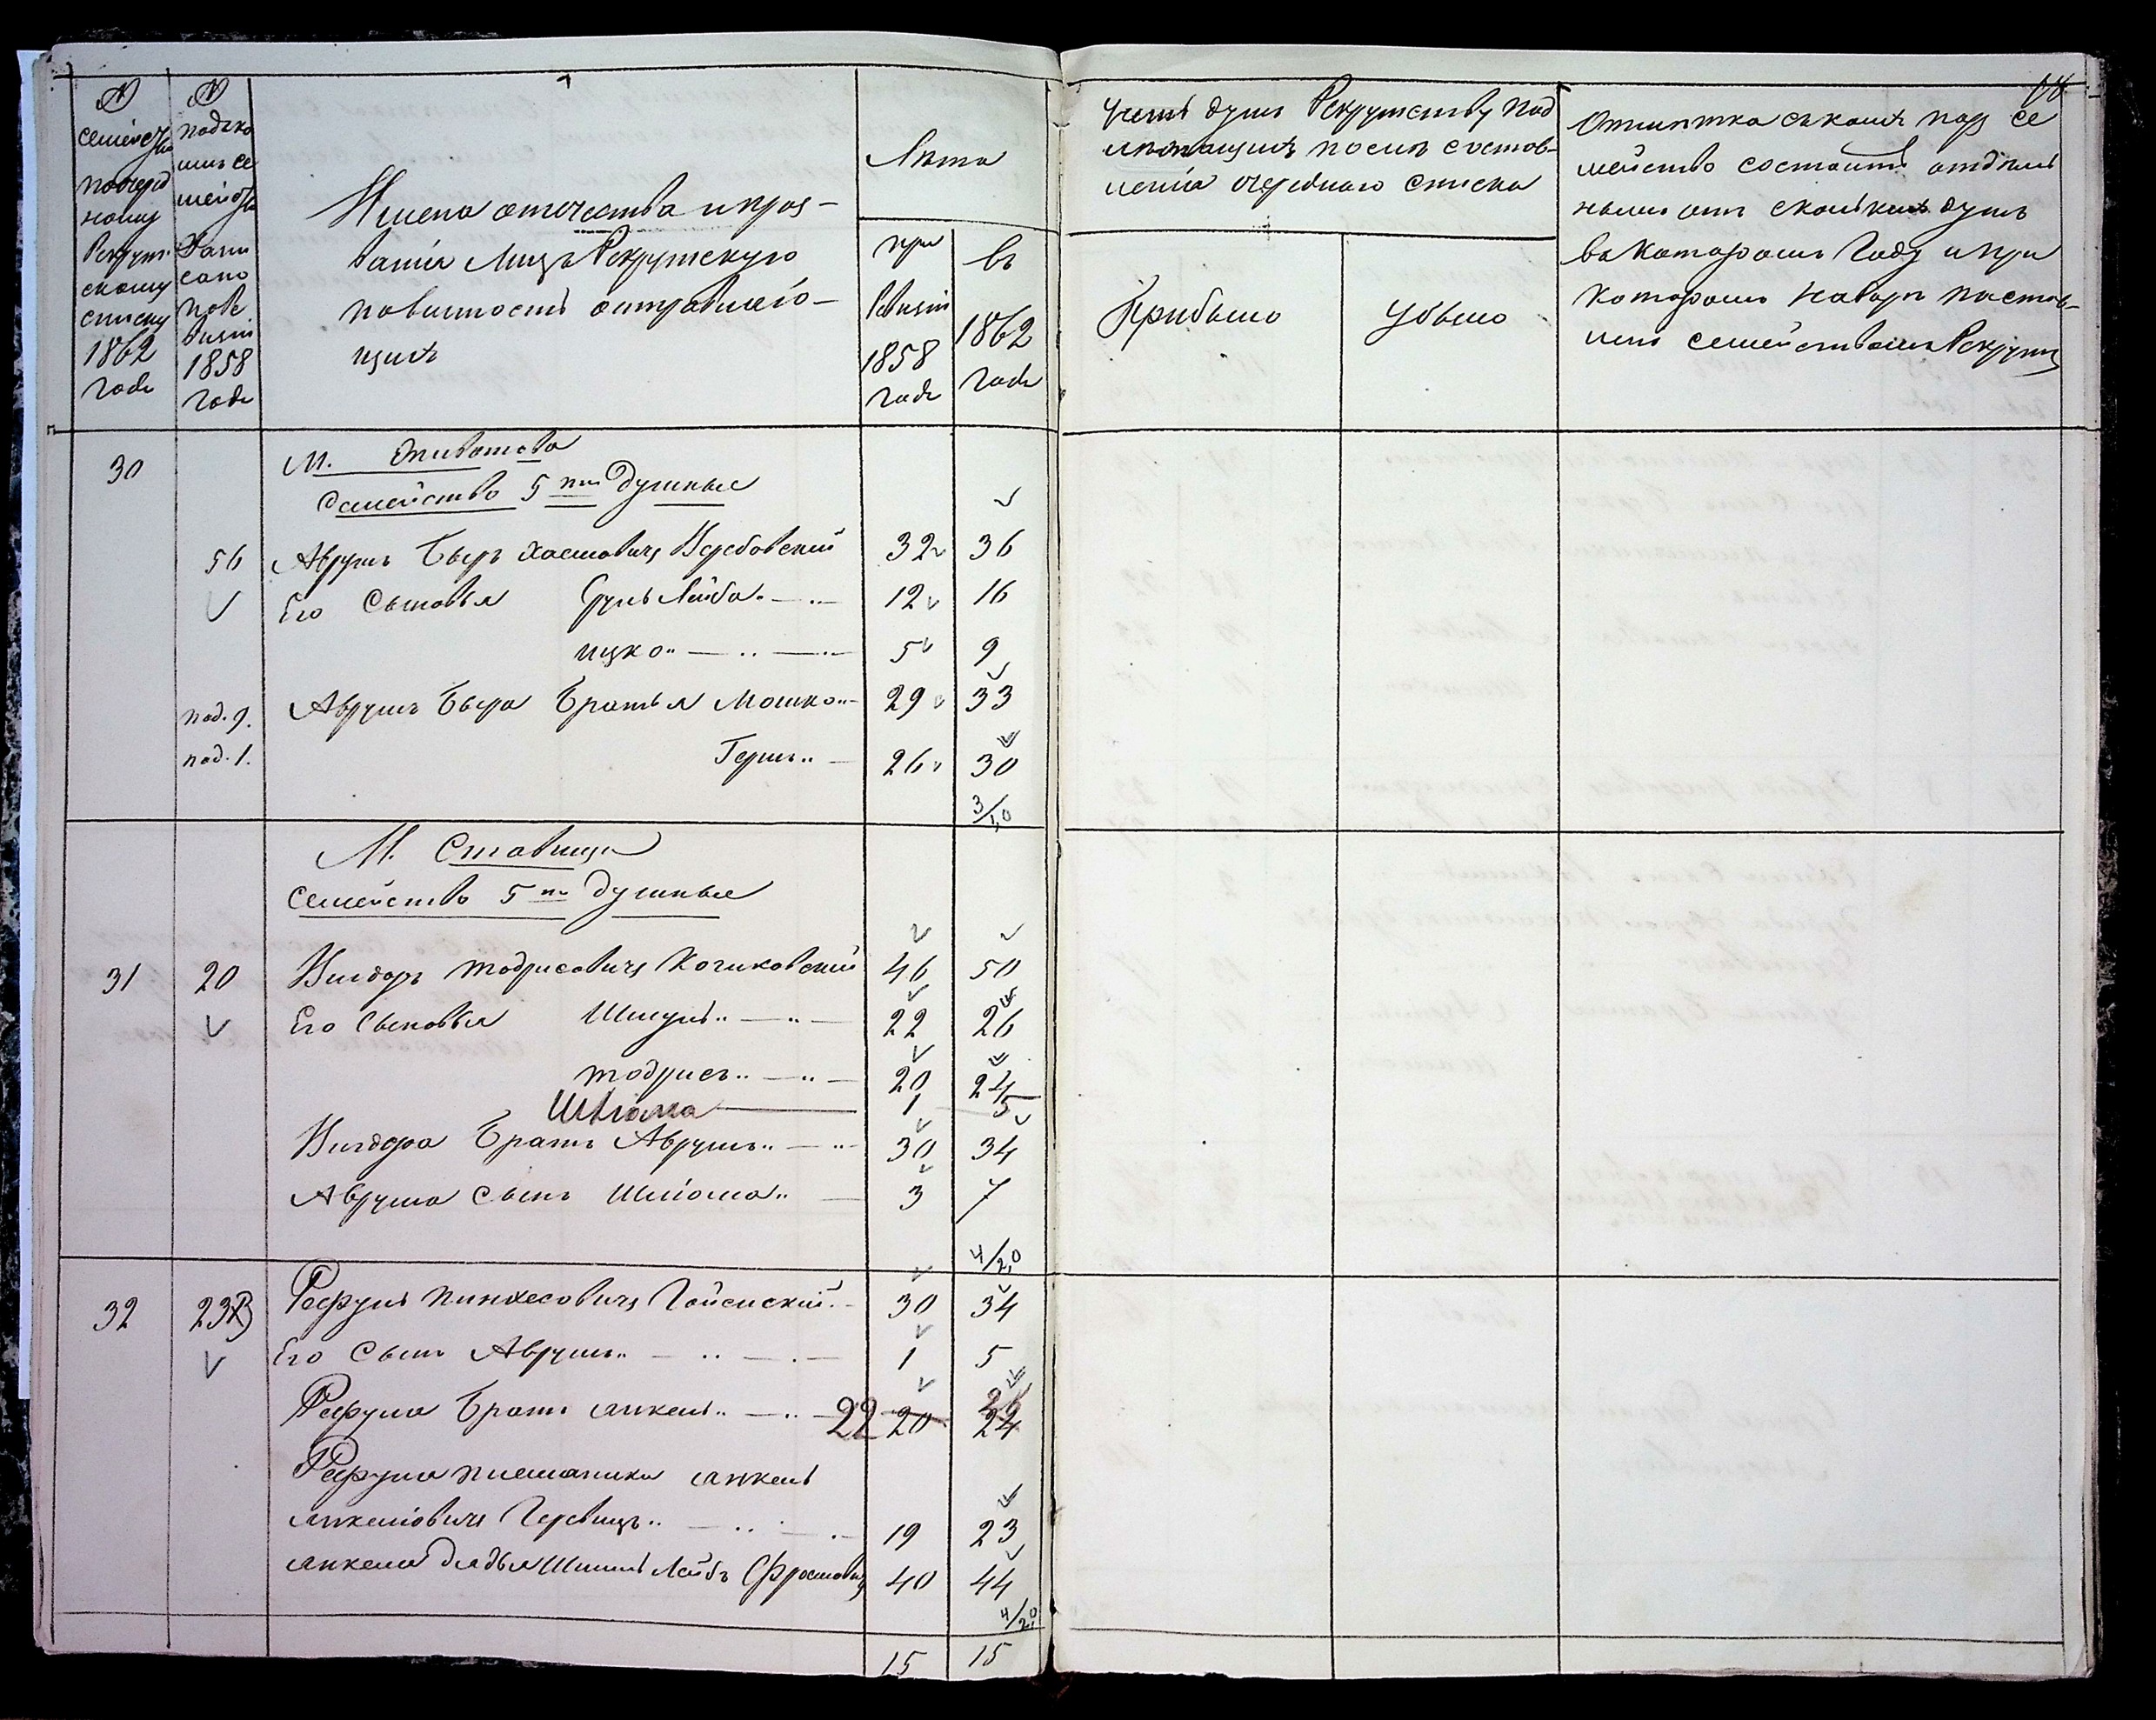 №
семейства
по очеред
ному
Рекрут
скому
списку
1862
года
№
под ко
имъ се
мейство
Запи
сано
по Ре
визiи
1858
года
Имена отечества и проз-
ванiя Лицъ Рекрутскую
повинность отправляю-
щихъ
Лѣта
при
Ревизiи
1858
года
въ
1862
года
Число душъ Рекрутству под
лежащихъ послѣ состав-
ленiя очереднаго списка
Прибыло
Убыло
Отмѣтка съ коихъ поръ се
мейство состоитъ отдѣль
нымъ отъ сколькихъ душъ
въ которомъ Году и при
которомъ наборѣ постав-
ленъ семействомъ Рекрутъ
30
М. Животова
Семейство 5 ти Душные
56 Аврумъ Беръ Хаемовичъ Вербовскiй 32 36
Его Сыновья Сруль Лейба 12 16
Ицко 5 9
под. 9. Аврумъ Бера Братья Мошко 29 33
под. 1. Гершъ 26 30
3/1,0
М. Ставищи
Семейство 5 ти Душные
31 20 Вигдоръ Тодрисовичъ Кочиковскiй 46 50
Его Сыновья Шмуль 22 26
Тодрисъ 20 24
Шлiома 1 5
Вигдора Братъ Аврумъ 30 34
Аврума Сынъ Шлiома 3 7
4/2,0
32 23 Рефулъ Пинхесовичъ Гайсискiй 30 34
Его Сынъ Аврумъ 1 5
Рефула Братъ Янкель 22 20 26 24
Рефула племяники Янкель
Янкелiовичъ Гервицъ 19 23
Янкеля дядья Шмиль Лейбъ Фроимовичъ 40 44
4/2,0
15 15